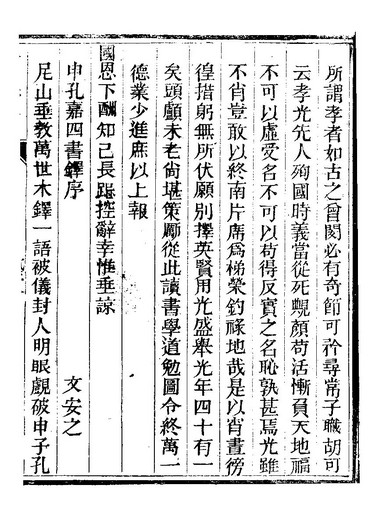 所謂孝者如古之曾閔必有奇節可矜尋常子職胡可
云孝光先人殉國時義當從死靦顏苟活慚負天地福
不可以虛受名不可以苟得反實之名恥孰甚焉光雖
不肖豈敢以終南片席爲梯榮釣祿地哉是以肖晝徬
徨措躬無所伏願別擇英賢用光盛舉光年四十有一
矣頭顱未老尚堪策厲從此讀書學道勉圖令終萬一
德業少進庶以上報
國恩下酬知己長跽控辭幸惟垂諒
申孔嘉四書鐸序
文安之
尼山垂教萬世木鐸一語被儀封人明眼覰破申子孔